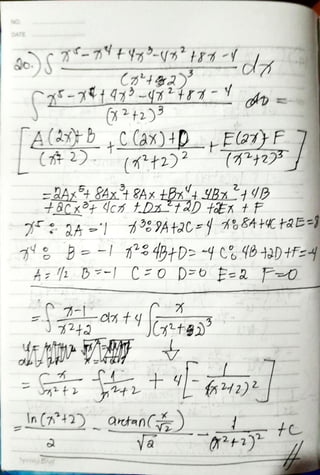 NO.
DATE
20.) ∫ x⁵ - x⁴ + 4x³ - 4x² + 8x - 4 / (x² + 2)³ dx
∫ x⁵ - x⁴ + 4x³ - 4x² + 8x - 4 / (x² + 2)³ dx =
[ A(2x) + B / (x² + 2) + C(2x) + D / (x² + 2)² + E(2x) + F / (x² + 2)³ ]
= 2Ax⁵ + 8Ax³ + 8Ax + Bx⁴ + 4Bx² + 4B
+ 2Cx³ + 4Cx + Dx² + 2D + 2Ex + F
x⁵: 2A = 1 x³: 8A + 2C = 4 x: 8A + 4C + 2E = 8
x⁴: B = -1 x²: 4B + D = -4 C: 4B + 2D + F = -4
A = 1/2 B = -1 C = 0 D = 0 E = 2 F = 0
= ∫ x - 1 / x² + 2 dx + 4 ∫ x / (x² + 2)³
↓
= ∫ x / x² + 2 - ∫ 1 / x² + 2 + 4 [ - 1 / 4(x² + 2)² ]
= ln(x² + 2) / 2 - arctan(x/√2) / √2 - 1 / (x² + 2)² + C